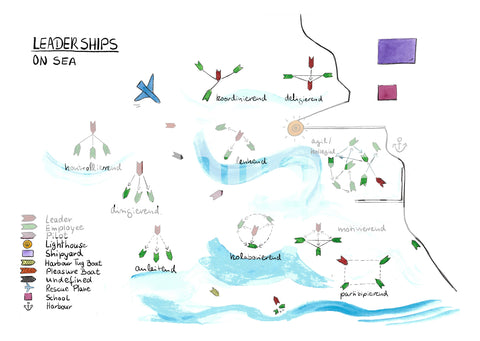 LEADERSHIPS
ON SEA
koordinierend
delegierend
agil/
kontrollierend
lenkend
dirigierend
anleitend
kolaborierend
motivierend
partizipierend
Leader
Employee
Pilot
Lighthouse
Shipyard
Harbour Tug Boat
Pleasure Boat
undefined
Rescue Plane
School
Harbour